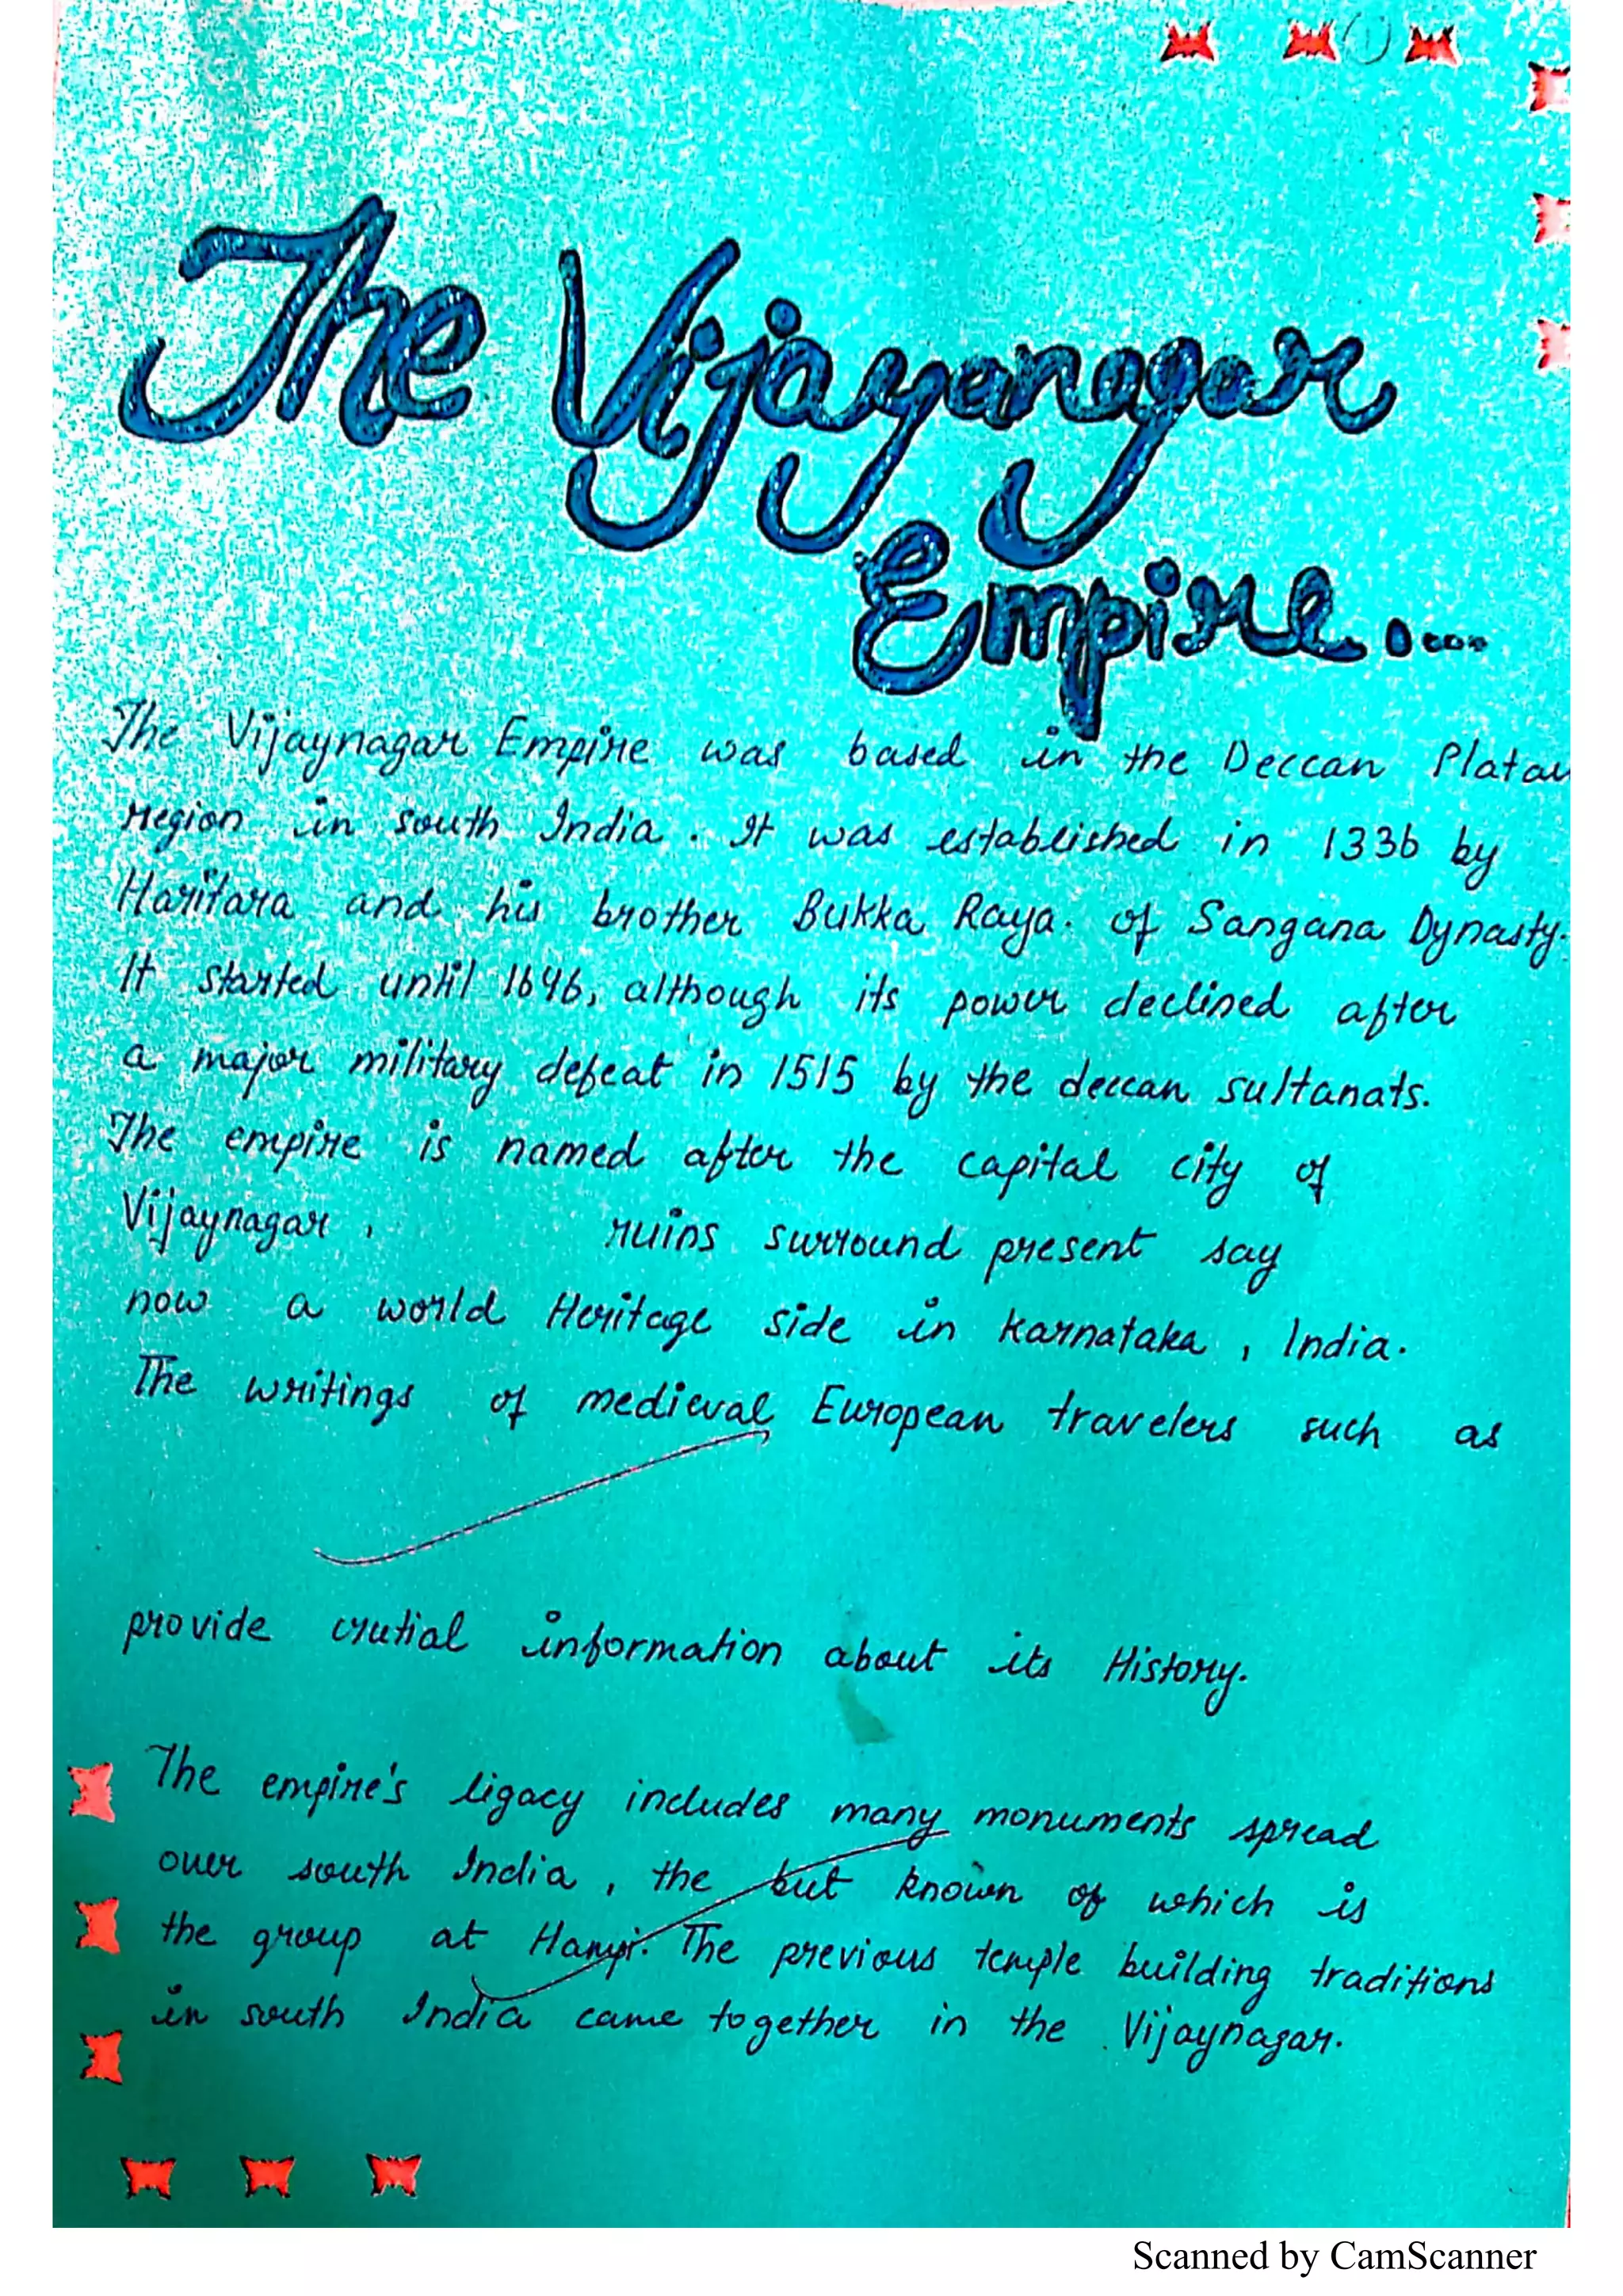 1
The Vijayanagar
Empire.....
The Vijaynagar Empire was based in the Deccan Platau
region in south India. It was established in 1336 by
Haritara and his brother Bukka Raya. of Sangana Dynasty.
It started until 1646, although its power declined after
a major military defeat in 1515 by the deccan sultanats.
The empire is named after the capital city of
Vijaynagar, ruins surround present say
now a world Heritage side in Karnataka, India.
The writings of medieval European travelers such as
provide crutial information about its History.
The empire's ligacy includes many monuments spread
over south India, the but known of which is
the group at Hampi. The previous temple building traditions
in south India came together in the Vijaynagar.
Scanned by CamScanner